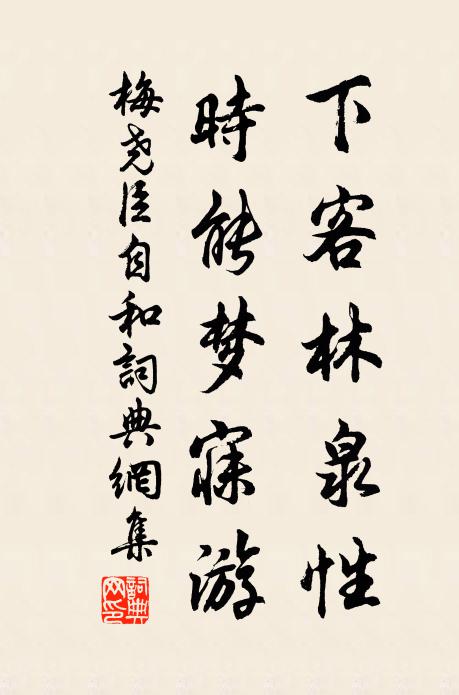 下客林泉性
時能梦寐游
梅尧臣自和詞典網集
詞典網印